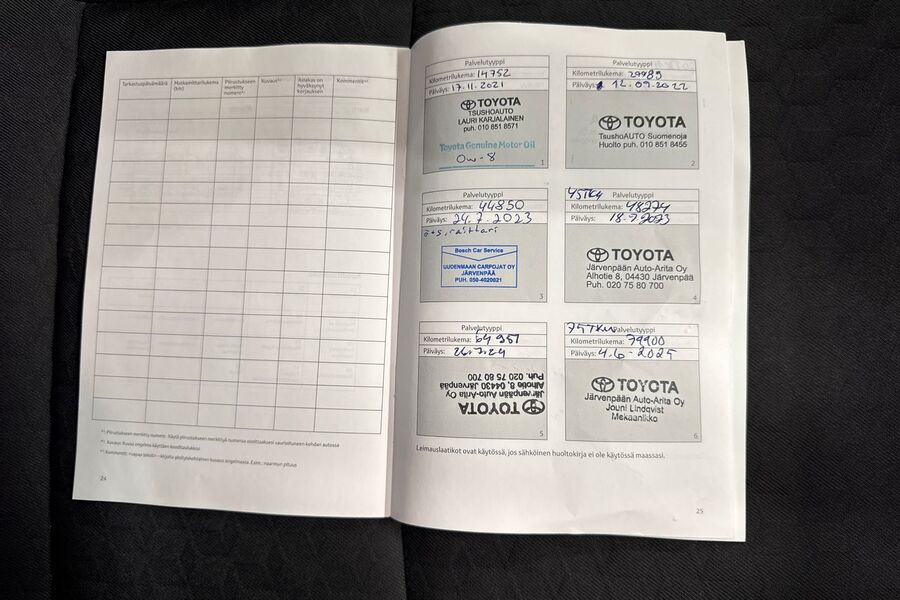 Tarkastuspäivämäärä
Matkamittarilukema
(km)
Piirustukseen
merkitty
numero*¹⁾
Kuvaus*²⁾
Asiakas on
hyväksynyt
korjauksen
Kommentit*³⁾
*¹⁾: Piirustukseen merkitty numero: Käytä piirustukseen merkittyä numeroa osoittaaksesi vaurioituneen kohdan autossa
*²⁾: Kuvaus: Kuvaa ongelma käyttäen koodiluetteloa
24
Palvelutyyppi
Kilometrilukema: 14752
Päiväys: 17.11.2021
TOYOTA
TSUSHOAUTO
LAURI KARJALAINEN
puh. 010 851 8571
Toyota Genuine Motor Oil
0w-8
1
Palvelutyyppi
Kilometrilukema: 29789
Päiväys: 12.09.2022
TOYOTA
TsushoAUTO Suomenoja
Huolto puh. 010 851 8455
2
Palvelutyyppi
Kilometrilukema: 44850
Päiväys: 24.7.2023
ö+s, raitthari
Bosch Car Service
UUDENMAAN CARPOJAT OY
JÄRVENPÄÄ
PUH. 050-4020821
3
45TKM Palvelutyyppi
Kilometrilukema: 48274
Päiväys: 18.9.2023
TOYOTA
Järvenpään Auto-Arita Oy
Alhotie 8, 04430 Järvenpää
Puh. 020 75 80 700
4
Palvelutyyppi
Kilometrilukema: 64951
Päiväys: 26.7.24
TOYOTA
Järvenpään Auto-Arita Oy
Alhotie 8, 04430 Järvenpää
Puh. 020 75 80 700
5
75TKM Palvelutyyppi
Kilometrilukema: 79900
Päiväys: 4.6-2025
TOYOTA
Järvenpään Auto-Arita Oy
Jouni Lindqvist
Mekaanikko
6
Leimauslaatikot ovat käytössä, jos sähköinen huoltokirja ei ole käytössä maassasi.
25